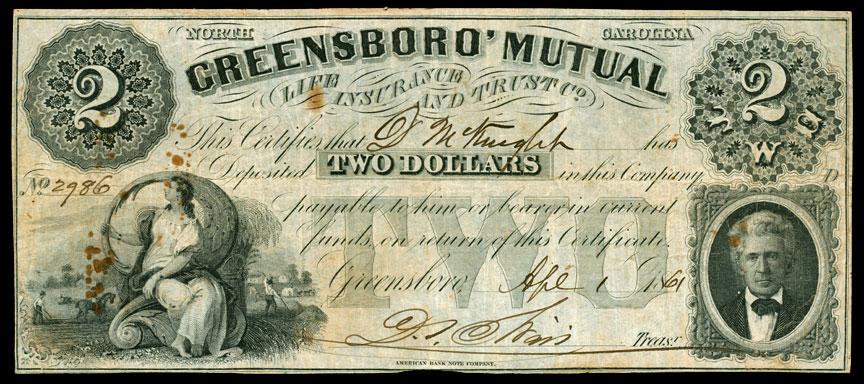 NORTH CAROLINA
GREENSBORO' MUTUAL
LIFE INSURANCE AND TRUST Co.
2
2
TWO
This Certifies that D McKnight has
Deposited TWO DOLLARS in this Company
No 2986
D
payable to him or bearer in current
funds, on return of this Certificate.
TWO
Greensboro, Apl 1 1861
Treasr.
AMERICAN BANK NOTE COMPANY.